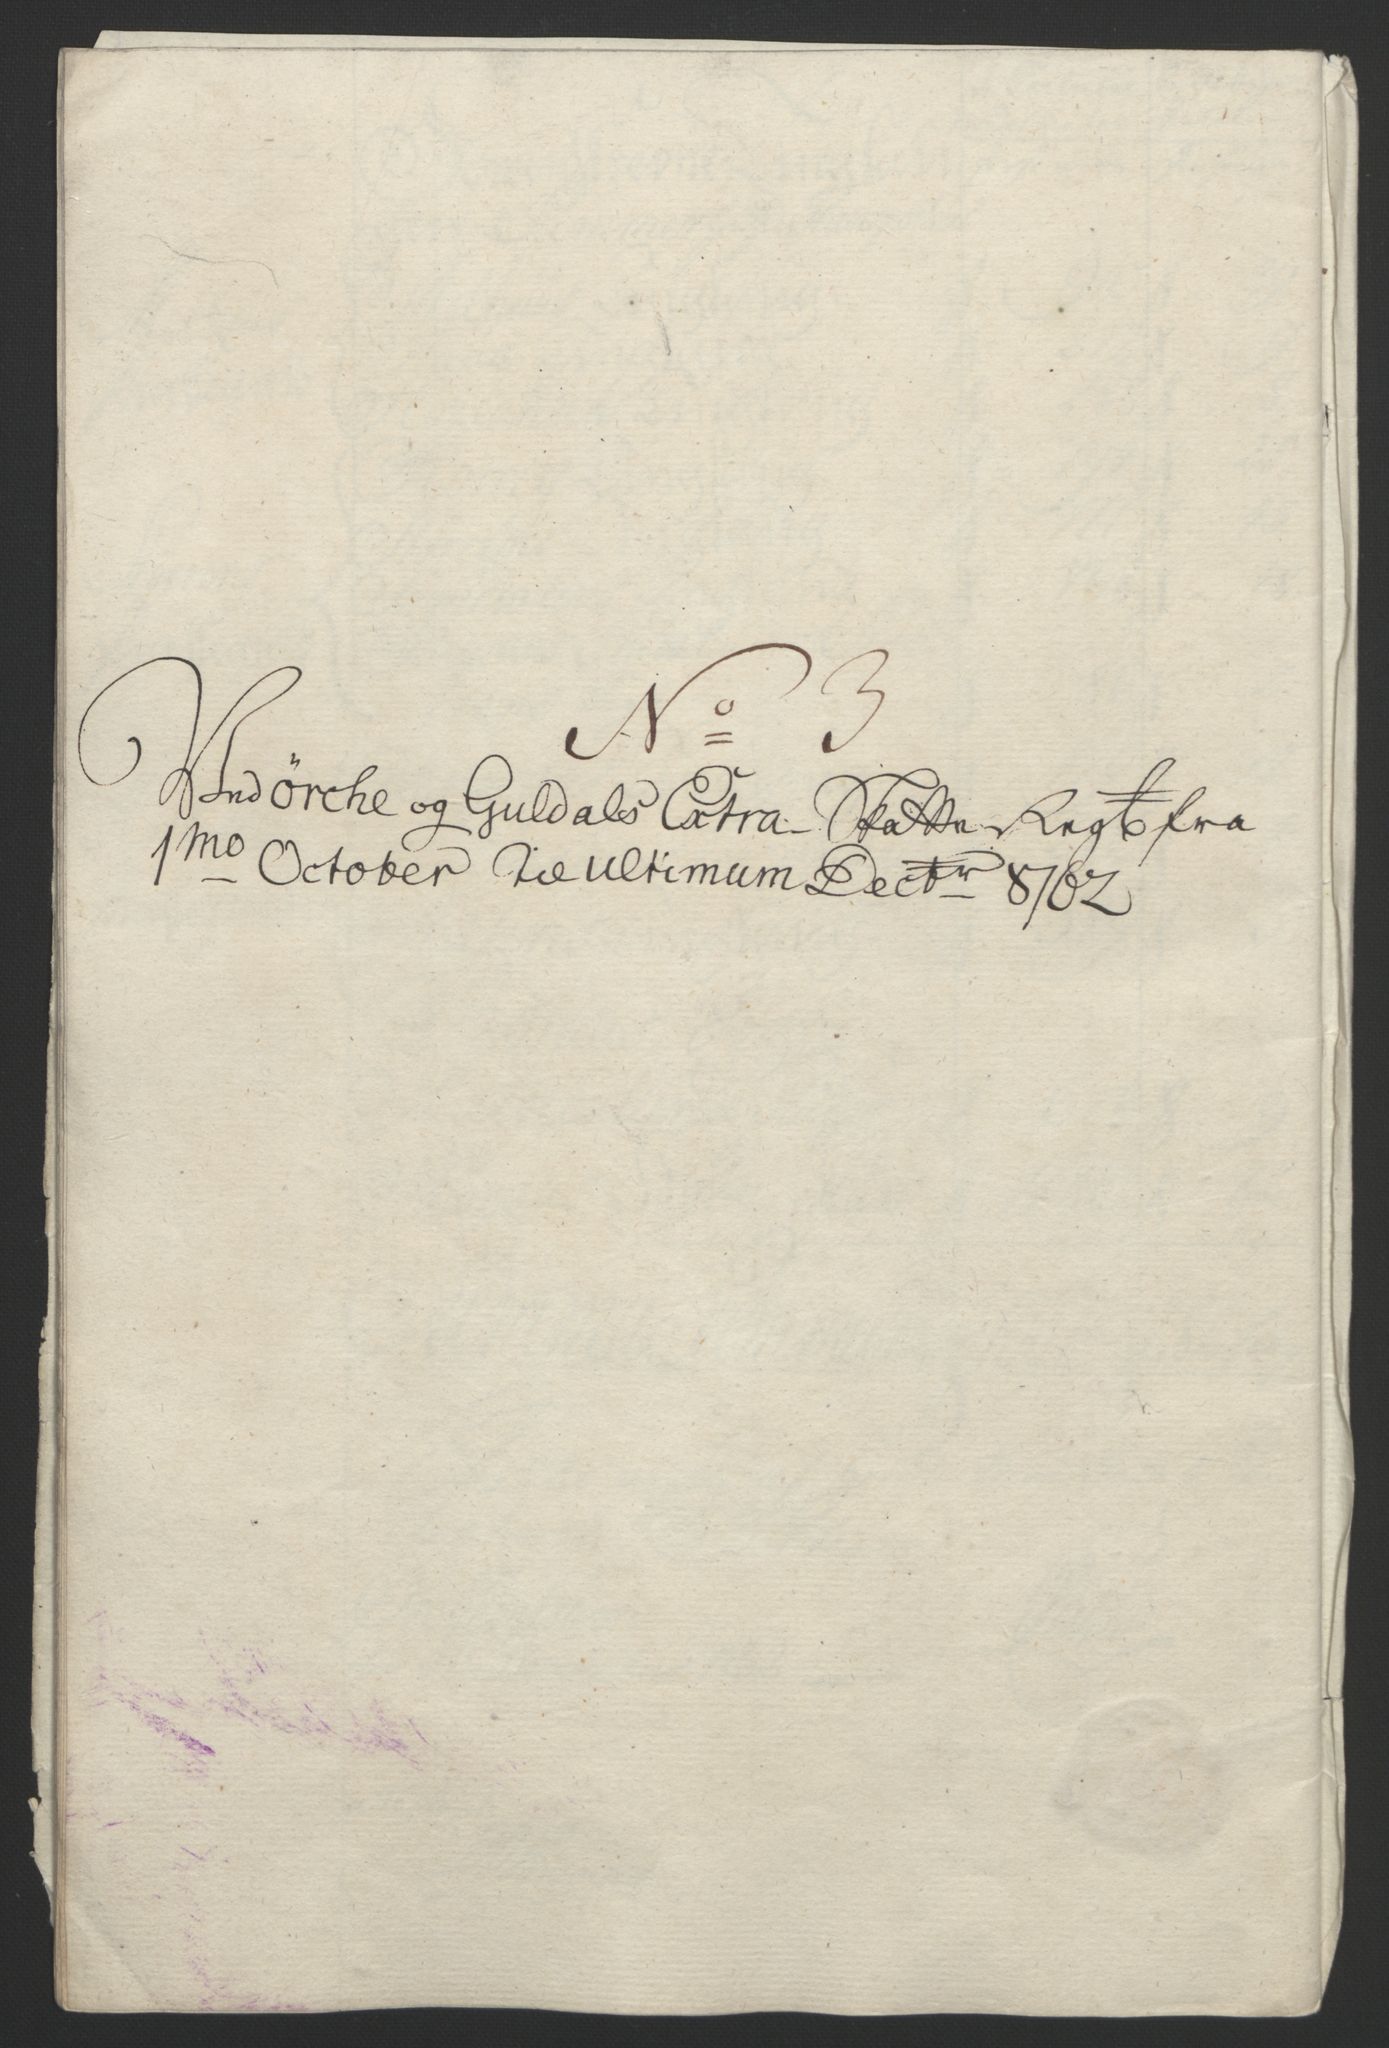 No 3
Indörche og Guldals Extra-Skatte-Regtb fra
1mo October til ultimum Decbr 1762